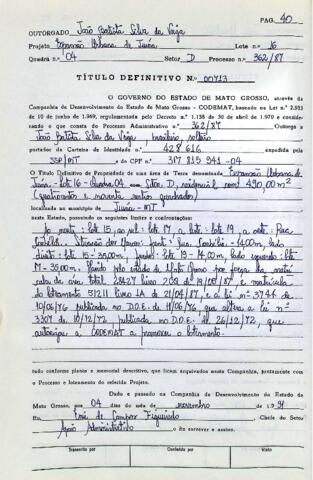 PAG. 40
OUTORGADO João Batista Silva da Veiga
Projeto Expansão Urbana de Juína Lote nº 16
Quadra nº 04 Setor D Processo nº 362/87
TÍTULO DEFINITIVO Nº 00713
O GOVERNO DO ESTADO DE MATO GROSSO, através da
Companhia de Desenvolvimento do Estado de Mato Grosso - CODEMAT, baseado na Lei nº 2.933
de 10 de junho de 1.969, regulamentada pelo Decreto n.º 1.138 de 30 de abril de 1.970 e consider-
ando o que consta do Processo Administrativo nº 362/87 Outorga a
João Batista Silva da Veiga brasileiro, solteiro
portador da Carteira de Identidade nº 428616
SSP/MT e do CPF nº 317 815 941 -04
O Título Definitivo de Propriedade de uma área de Terra denominada Expansão Urbana de
Juína - Lote 16 - Quadra 04 com Setor D, residencial com 490,00 m2
(quatrocentos e noventa metros quadrados)
localizada no município de Juína - MT
neste Estado, possuindo os seguintes limites e confrontações:
Ao norte: lote 15, ao sul: lote 17, a leste: lote 19, a oeste: Rua
frente: Rua 14,00m, lado
direito: lote 15 - 35,00m, fundos: lote 19 - 14,00m, lado esquerdo: lote
17 - 35,00m. Havido pelo estado de Mato Grosso por força da matrí
cula da área total 28427 livro 2
do loteamento 51211 livro 1A de 21/04/87, e a lei nº 3744 de
10/06/1976 publicada no D.O.E. de 11/06/76, que altera a lei nº
3307 de 10/12/72 publicada no D.O.E. de 26/12/72, que
autoriza a CODEMAT a promover o loteamento.
tudo conforme planta e memorial descritivo, que ficam arquivados nesta Companhia, juntamente com
o Processo e loteamento do referido Projeto.
Dado e passado na Companhia de Desenvolvimento do Estado de
Mato Grosso, aos 04 dias do mês de novembro de 1.991
Eu, de Campos Figueiredo Chefe do Setor
Apoio Administrativo o fiz escrever e assino.
Transcrito por Conferido por Visto